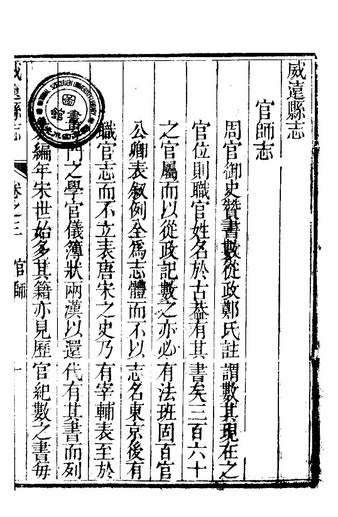 威遠縣志
官師志
周官御史贊書數從政鄭氏註謂數其現在之
官位則職官姓名於古葢有其書矣三百六十
之官屬而以從政記數之亦必有法班固百官
公卿表叙例全爲志體而不以志名東京後有
職官志而不立表唐宋之史乃有宰輔表至於
門之學官儀簿狀兩漢以還代有其書而列
編年宋世始多其籍亦見歷官紀數之書每
威遠縣志 卷之三 官師 一